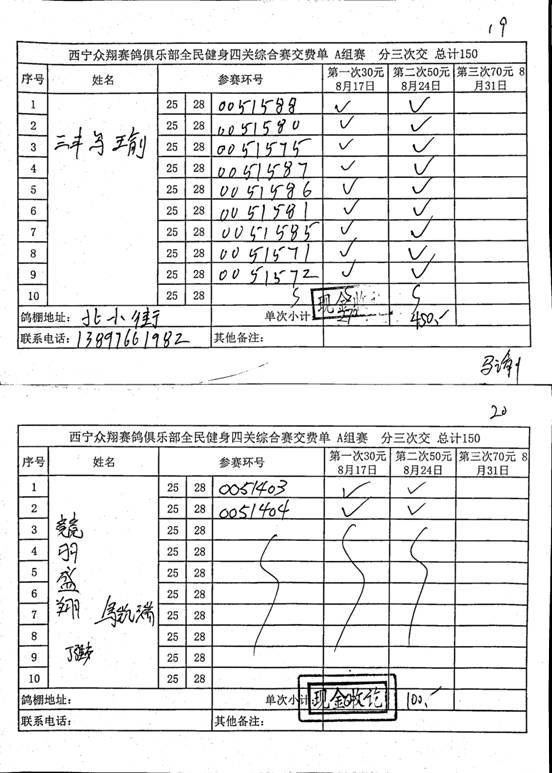 19
西宁众翔赛鸽俱乐部全民健身四关综合赛交费单 A组赛 分三次交 总计150
序号 姓名 参赛环号 第一次30元 8月17日 第二次50元 8月24日 第三次70元 8月31日
1 25 28 0051588 ✓ ✓
2 25 28 0051580 ✓ ✓
3 25 28 0051575 ✓ ✓
4 25 28 0051587 ✓ ✓
5 25 28 0051586 ✓ ✓
6 25 28 0051581 ✓ ✓
7 25 28 0051585 ✓ ✓
8 25 28 0051571 ✓ ✓
9 25 28 0051572 ✓ ✓
10 25 28
鸽棚地址: 北小街 单次小计: 现金收讫 450
联系电话: 13897661982 其他备注:
20
西宁众翔赛鸽俱乐部全民健身四关综合赛交费单 A组赛 分三次交 总计150
序号 姓名 参赛环号 第一次30元 8月17日 第二次50元 8月24日 第三次70元 8月31日
竞羽盛翔 马凯瑞
1 25 28 0051403 ✓ ✓
2 25 28 0051404 ✓ ✓
3 25 28
4 25 28
5 25 28
6 25 28
7 25 28
8 25 28
9 25 28
10 25 28
鸽棚地址: 单次小计: 现金收讫 100
联系电话: 其他备注: